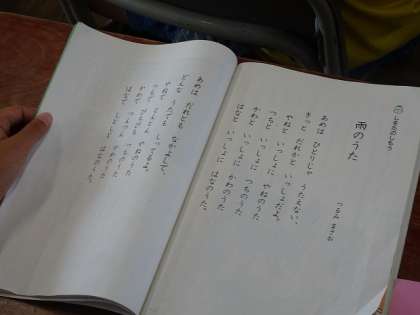 しをたのしもう
雨のうた
つるみ まさお
あめは ひとりじゃ うたえない、
きっと だれかと いっしょだよ。
やねと いっしょに やねのうた
つちと いっしょに つちのうた
かわと いっしょに かわのうた
はなと いっしょに はなのうた。
あめは だれとも なかよしで、
どんな うたでも しってるよ。
やねで とんとん やねのうた
つちで ぴちぴち つちのうた
かわで つんつん かわのうた
はなで しとしと はなのうた。